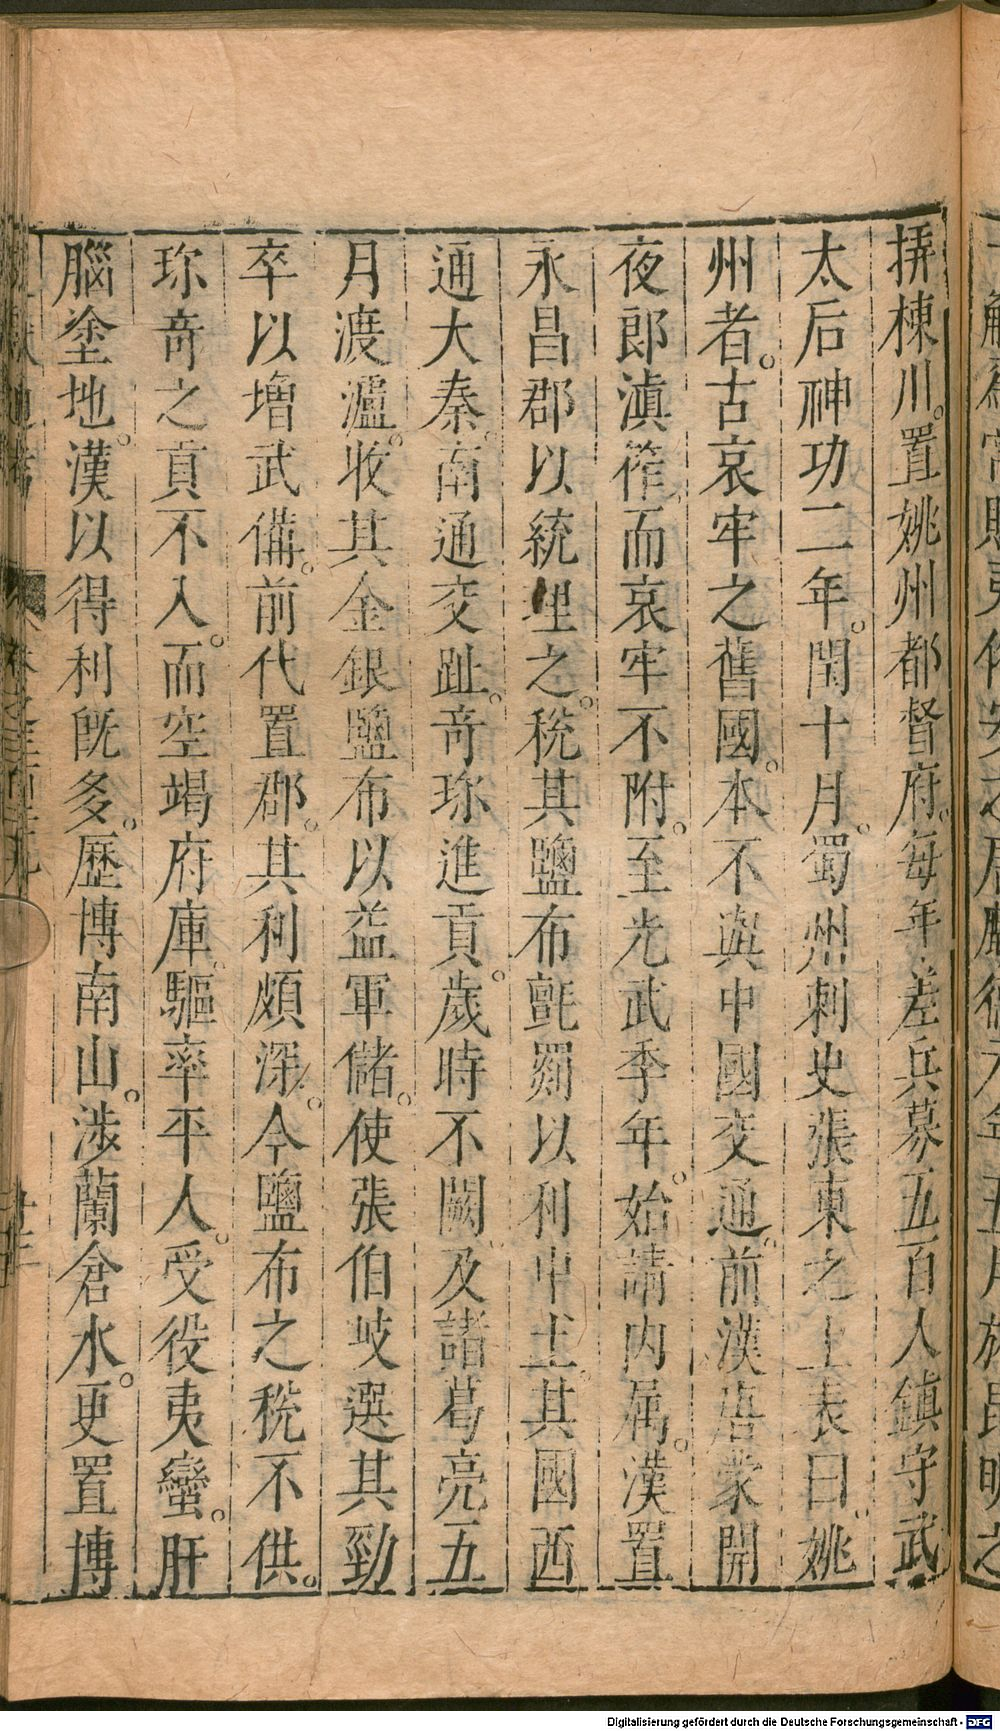 㨒棟川。置姚州都督府。每年差兵募五百人鎮守武
太后神功二年。閏十月。蜀州刺史張柬之上表曰。姚
州者。古哀牢之舊國。本不與中國交通。前漢唐蒙開
夜郎滇筰。而哀牢不附。至光武季年。始請內属。漢置
永昌郡以統理之。稅其鹽布氈罽以利中土。其國西
通大秦。南通交趾。奇珎進貢。歲時不闕。及諸葛亮五
月渡瀘。收其金銀鹽布以益軍儲。使張伯岐選其勁
卒以增武備。前代置郡。其利頗深。今鹽布之稅不供。
珎奇之貢不入。而空竭府庫。驅率平人。受役夷蠻。肝
腦塗地。漢以得利旣多。歷博南山。涉蘭倉水。更置博
Digitalisierung gefördert durch die Deutsche Forschungsgemeinschaft - DFG